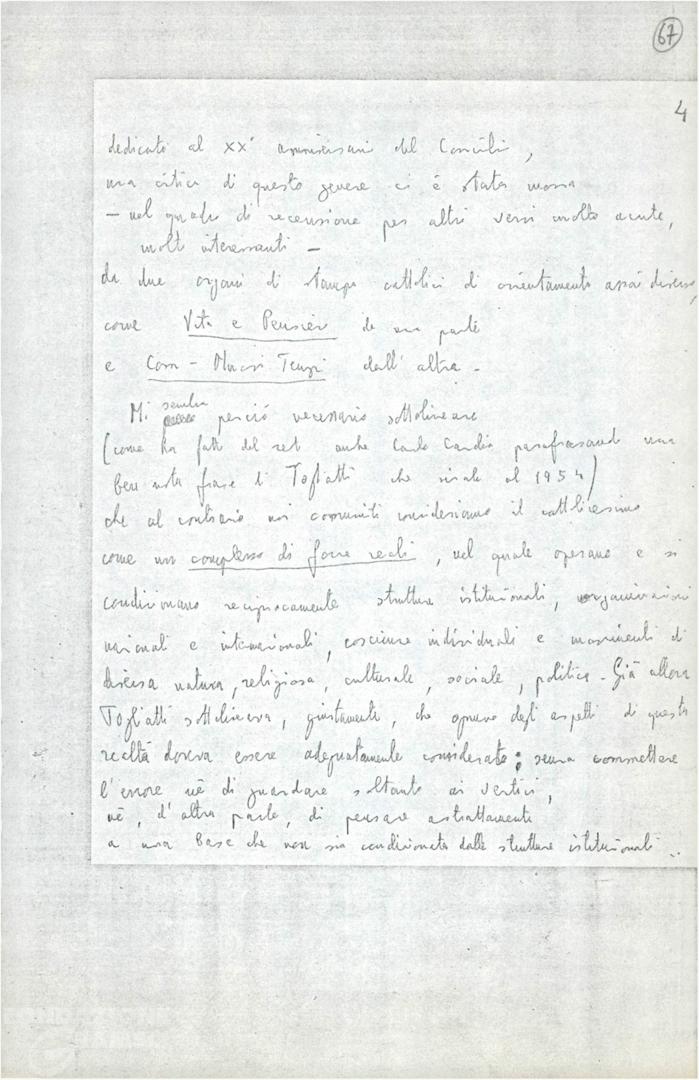 67
4
dedicato al XX° anniversario del Concilio,
una critica di questo genere ci è stata mossa
– nel quadro di recensione per altri versi molto acute,
molto interessanti –
da due organi di stampa cattolici di orientamento assai diverso,
come Vita e Pensiero da una parte
e Com – Nuovi Tempi dall'altra.
Mi sembra perciò necessario sottolineare
(come ha fatto del resto anche Carlo Cardia parafrasando una
ben nota frase di Togliatti che risale al 1954)
che al contrario noi comunisti consideriamo il cattolicesimo
come un complesso di forze reali, nel quale operano e si
condizionano reciprocamente strutture istituzionali, organizzazioni
nazionali e internazionali, coscienze individuali e movimenti di
diversa natura, religiosa, culturale, sociale, politica. Già allora
Togliatti sottolineava, giustamente, che ognuno degli aspetti di questa
realtà doveva essere adeguatamente considerato; senza commettere
l'errore né di guardare soltanto ai vertici,
né, d'altra parte, di pensare astrattamente
a una base che non sia condizionata dalle strutture istituzionali..